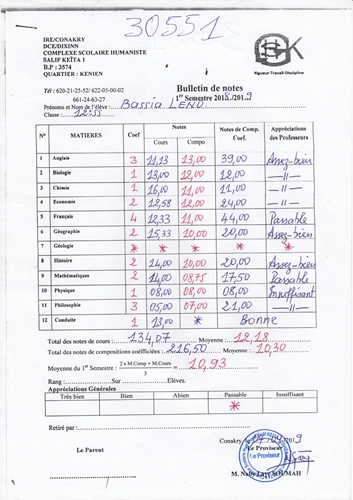 30551
IRE/CONAKRY
DCE/DIXINN
COMPLEXE SCOLAIRE HUMANISTE
SALIF KEÏTA 1
B.P : 3574
QUARTIER : KENIEN
Rigueur-Travail-Discipline
Tél : 620-21-25-52/ 622-05-00-02
661-24-63-27
Bulletin de notes
1er Semestre 2018/2019
Prénoms et Nom de l'élève : Bassia LENO
Classe : 12è SS
N° MATIERES Coef Notes Notes de Comp. Coef. Appréciations des Professeurs
Cours Compo
1 Anglais 3 11,13 13,00 39,00 Assez-bien
2 Biologie 1 13,00 12,00 12,00 —//—
3 Chimie 1 16,00 11,00 11,00 —//—
4 Economie 2 12,58 12,00 24,00 —//—
5 Français 4 12,33 11,00 44,00 Passable
6 Géographie 2 15,33 10,00 20,00 Assez-bien
7 Géologie * * * * *
8 Histoire 2 14,00 10,00 20,00 Assez-bien
9 Mathématiques 2 14,00 08,75 17,50 Passable
10 Physique 1 08,00 08,00 08,00 Insuffisant
11 Philosophie 3 05,00 07,00 21,00 —//—
12 Conduite 1 13,00 * BONNE
Total des notes de cours : 134,07 Moyenne : 12,18
Total des notes de compositions coéfficiées : 216,50 Moyenne : 10,30
Moyenne du 1er Semestre : 2 x M.Comp + M.Cours / 3 = 10,93
Rang : Sur Elèves.
Appréciations Générales
Très bien Bien Abien Passable Insuffisant
*
Retiré par :
Conakry, 2019
Le Parent
Le Proviseur
Le Proviseur